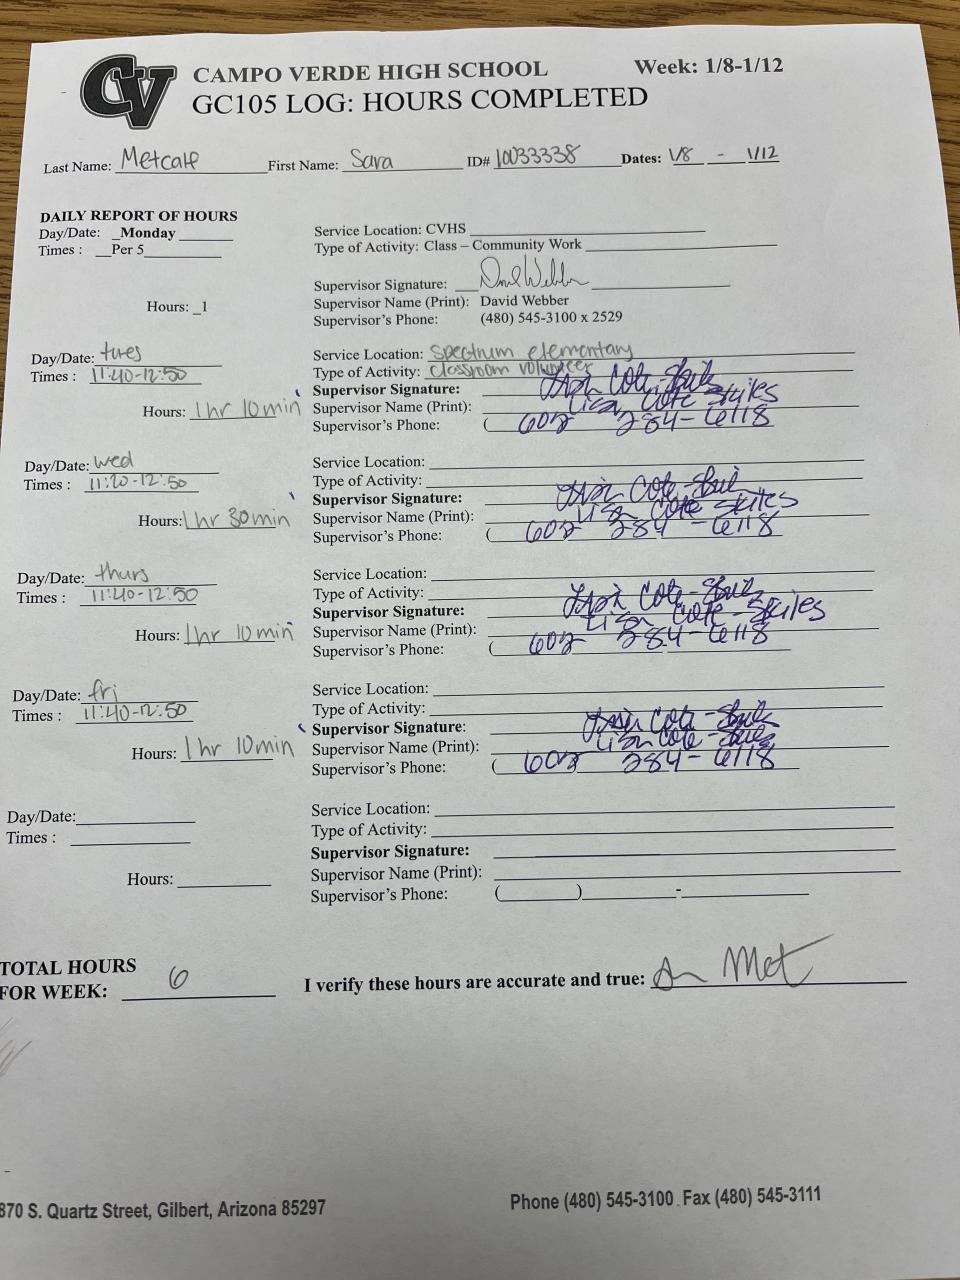 CV CAMPO VERDE HIGH SCHOOL Week: 1/8-1/12
GC105 LOG: HOURS COMPLETED
Last Name: Metcalf First Name: Sara ID# 10033338 Dates: 1/8 - 1/12
DAILY REPORT OF HOURS
Day/Date: _Monday Service Location: CVHS
Times : Per 5 Type of Activity: Class – Community Work
Supervisor Signature: David Webber
Hours: _1 Supervisor Name (Print): David Webber
Supervisor's Phone: (480) 545-3100 x 2529
Day/Date: tues Service Location: Spectrum elementary
Times : 11:40-12:50 Type of Activity: Classroom volunteer
Supervisor Signature: Lisa Cote-Skiles
Hours: 1 hr 10 min Supervisor Name (Print): Lisa Cote Skiles
Supervisor's Phone: (602 284-6118
Day/Date: wed Service Location:
Times : 11:20-12:50 Type of Activity:
Supervisor Signature: Lisa Cote-Skiles
Hours: 1 hr 30 min Supervisor Name (Print): Lisa Cote Skiles
Supervisor's Phone: (602 284-6118
Day/Date: thurs Service Location:
Times : 11:40-12:50 Type of Activity:
Supervisor Signature: Lisa Cote-Skiles
Hours: 1 hr 10 min Supervisor Name (Print): Lisa Cote-Skiles
Supervisor's Phone: (602 284-6118
Day/Date: fri Service Location:
Times : 11:40-12:50 Type of Activity:
Supervisor Signature: Lisa Cote-Skiles
Hours: 1 hr 10 min Supervisor Name (Print): Lisa Cote-Skiles
Supervisor's Phone: (602 284-6118
Day/Date: Service Location:
Times : Type of Activity:
Supervisor Signature:
Hours: Supervisor Name (Print):
Supervisor's Phone: ( ) -
TOTAL HOURS
FOR WEEK: 6 I verify these hours are accurate and true: Met
870 S. Quartz Street, Gilbert, Arizona 85297 Phone (480) 545-3100 Fax (480) 545-3111